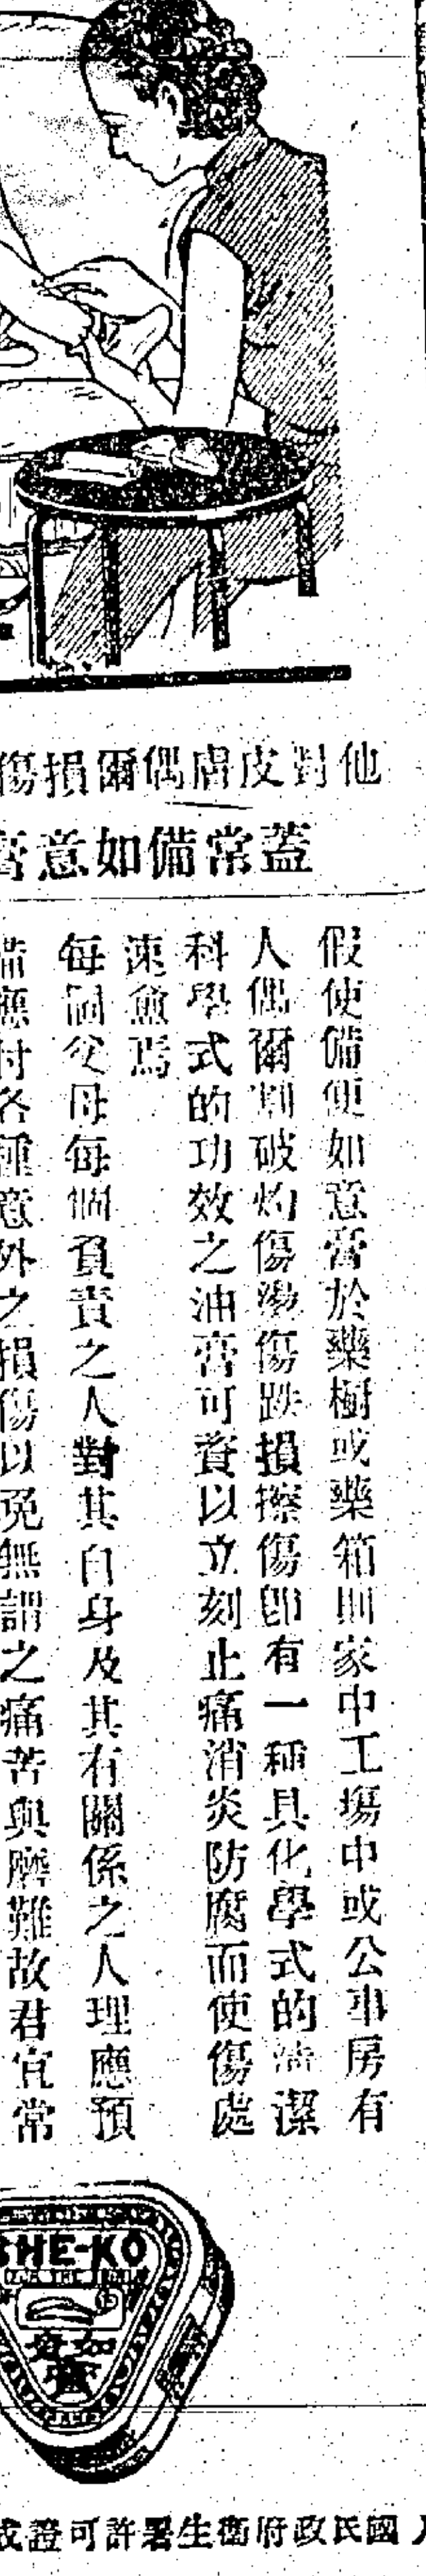 他對皮膚偶爾損傷
蓋常備如意膏
假使備便如意膏於藥櫥或藥箱則家中工場中或公事房有
人偶爾割破灼傷湯傷跌損擦傷即有一種具化學式的清潔
科學式的功效之油膏可資以立刻止痛消炎防腐而使傷處
速愈焉
每個父母每個負責之人對其自身及其有關係之人理應預
備應付各種意外之損傷以免無謂之痛苦與磨難故君宜常
SHE-KO
如意膏
國民政府衛生署許可證成